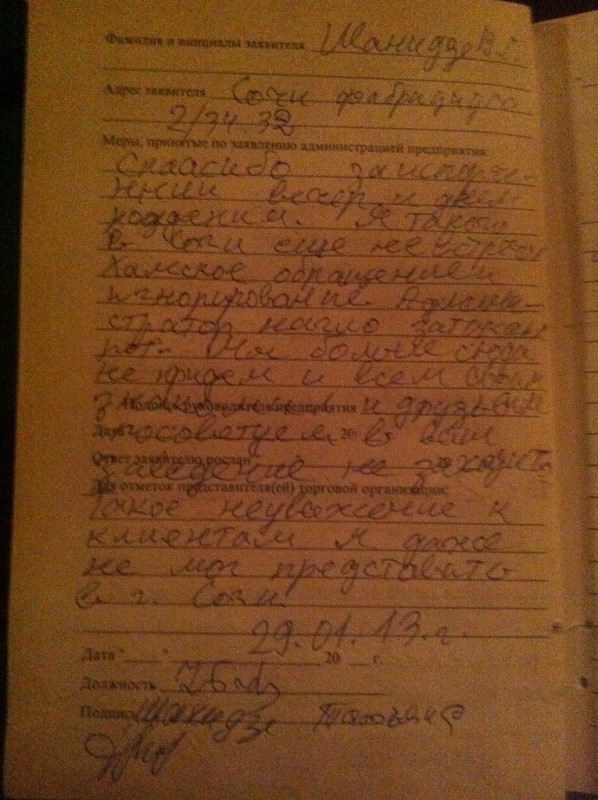 Фамилия и инициалы заявителя Шанидзе В.Г.
Адрес заявителя Сочи фабрициуса
2/34 32
Меры, принятые по заявлению администрацией предприятия:
Спаасибо за испорче-
нний вечер и днем
рождения. Я такого
в Сочи еще не встречал
Хамское обращением
игнорирование. Админи-
стратор нагло затыкал
рот. Мы больше сюда
не придем и всем своим
Подпись руководителя предприятия и друзьям
Дата посоветуем 20 в ваш
Ответ заявителю послан
заведение не заходить
Для отметок представителя(ей) торговой организации:
Такое неуважение к
клиентам я даже
не мог представить
в г. Сочи
29.01.13.г.
Дата "____" 20 г.
Должность
Подпись Шанидзе Татьяна